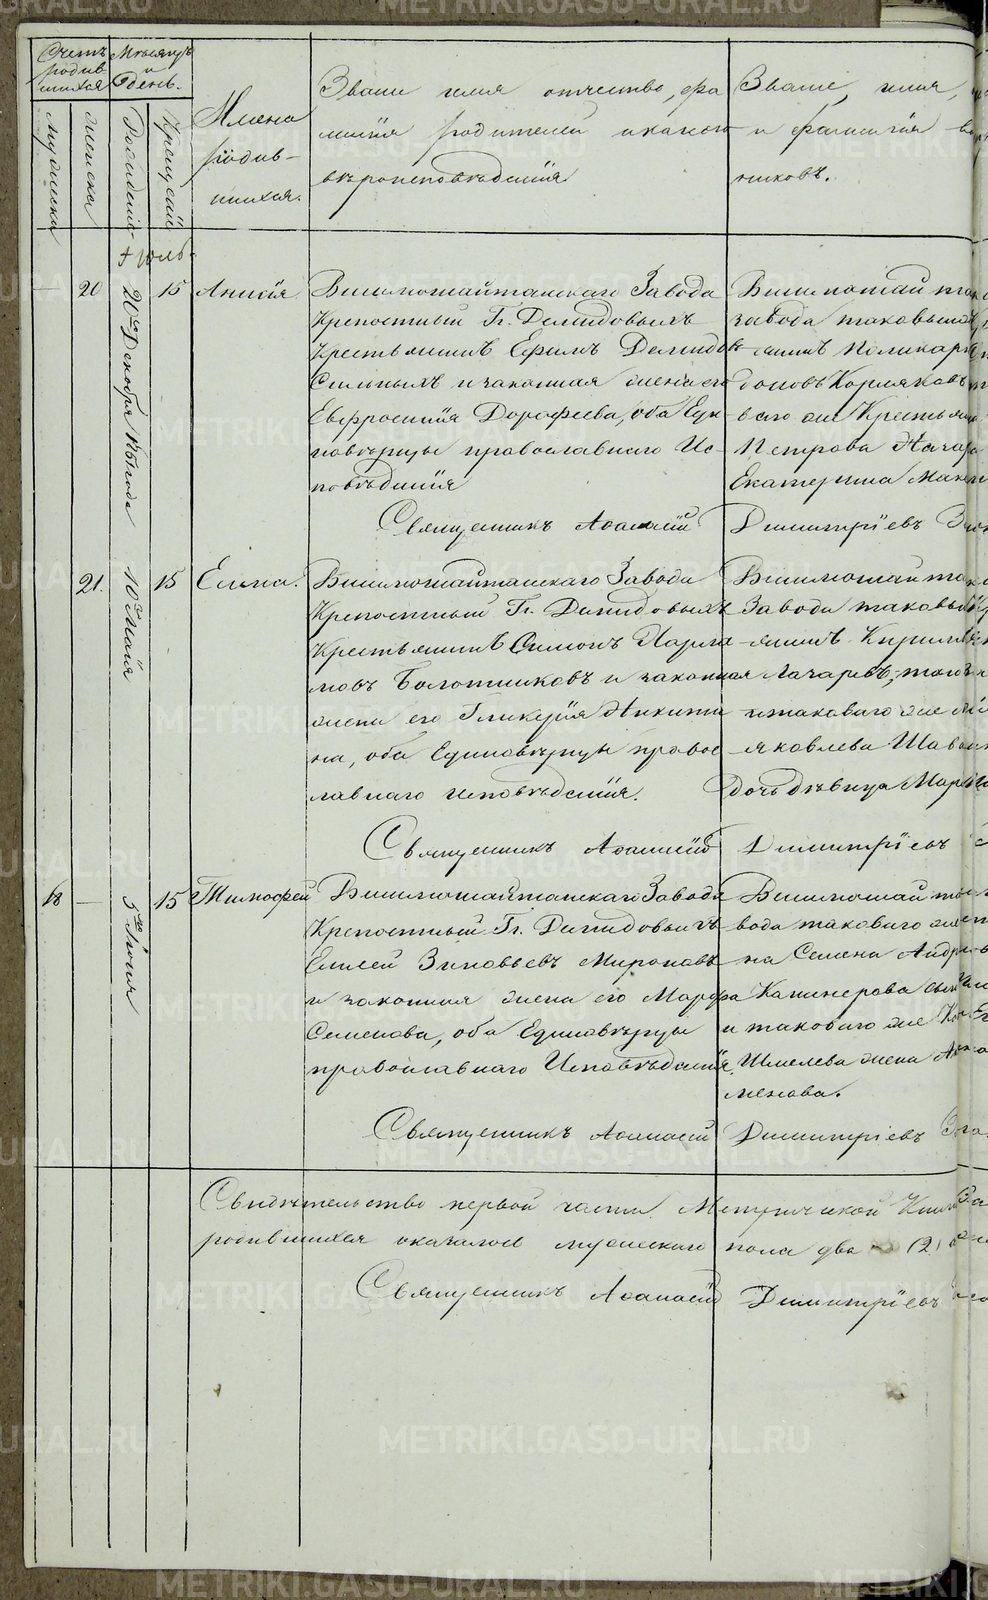 Счетъ родив-шихся
Мѣсяцъ и день.
Имена родив-шихся.
Званіе имя отчество, фа-
милія родителей и какого
вѣроисповѣданія
Званіе, имя,
и фамилія
никовъ.
мужска
женска
Рожденія
Крещенія
Іюль
20
20го Декабря
15
Анисія
Висимошайтанскаго Завода
Крепостный Гг. Демидовыхъ
Крестьянинъ Ефимъ Демидовъ
и законная жена его
Евфросинія Дорофеева, оба Еди-
новѣрцы православнаго Ис-
повѣданія
Висимошайтан
завода таковый
янинъ Поликарп
Кормяковъ
ваго же Крестьян
Петрова Назар
Екатерина
Священникъ Афанасій Димитріевъ
21.
10 Майя
15
Елена.
Висимошайтанскаго Завода
Крепостный Гг. Демидовыхъ
Крестьянинъ Симонъ Харла-
мовъ Болотниковъ и законная
жена его Гликерія Никити-
на, оба Единовѣрцы правос-
лавнаго исповѣданія.
Висимошайтан
Завода таковый
янинъ Кирилъ
Лазаревъ,
и таковаго же
яковлева
дочь дѣвица Мар
Священникъ Афанасій Димитріевъ
18
5го Іюня
15
Тимофей
Висимошайтанскаго Завода
Крепостный Гг. Демидовыхъ
Елисей Зиновьевъ Мироновъ
и законная жена его Марфа
Семенова, оба Единовѣрцы
православнаго Исповѣданія
Висимошайтан
вода таковаго же
на Семена Андр
Канцерова сын
и таковаго же
Шмелева жена
менова.
Священникъ Афанасій Димитріевъ
Свидѣтельство первой части Метрической Книги
родившихся оказалось мужескаго пола два (2)
Священникъ Афанасій Димитріевъ
METRIKI.GASO-URAL.RU